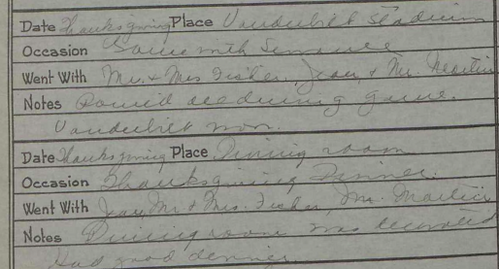 Date Thanksgiving Place Vanderbilt Stadium
Occasion Game with Sewanee
Went With Mr. & Mrs Fisher, Jean, & Mr. Martin
Notes Rained during game.
Vanderbilt won.
Date Thanksgiving Place Dining room
Occasion Thanksgiving Dinner.
Went With Jean, Mr. & Mrs. Fisher, Mr. Martin
Notes Dining room was decorated
Had good dinner.